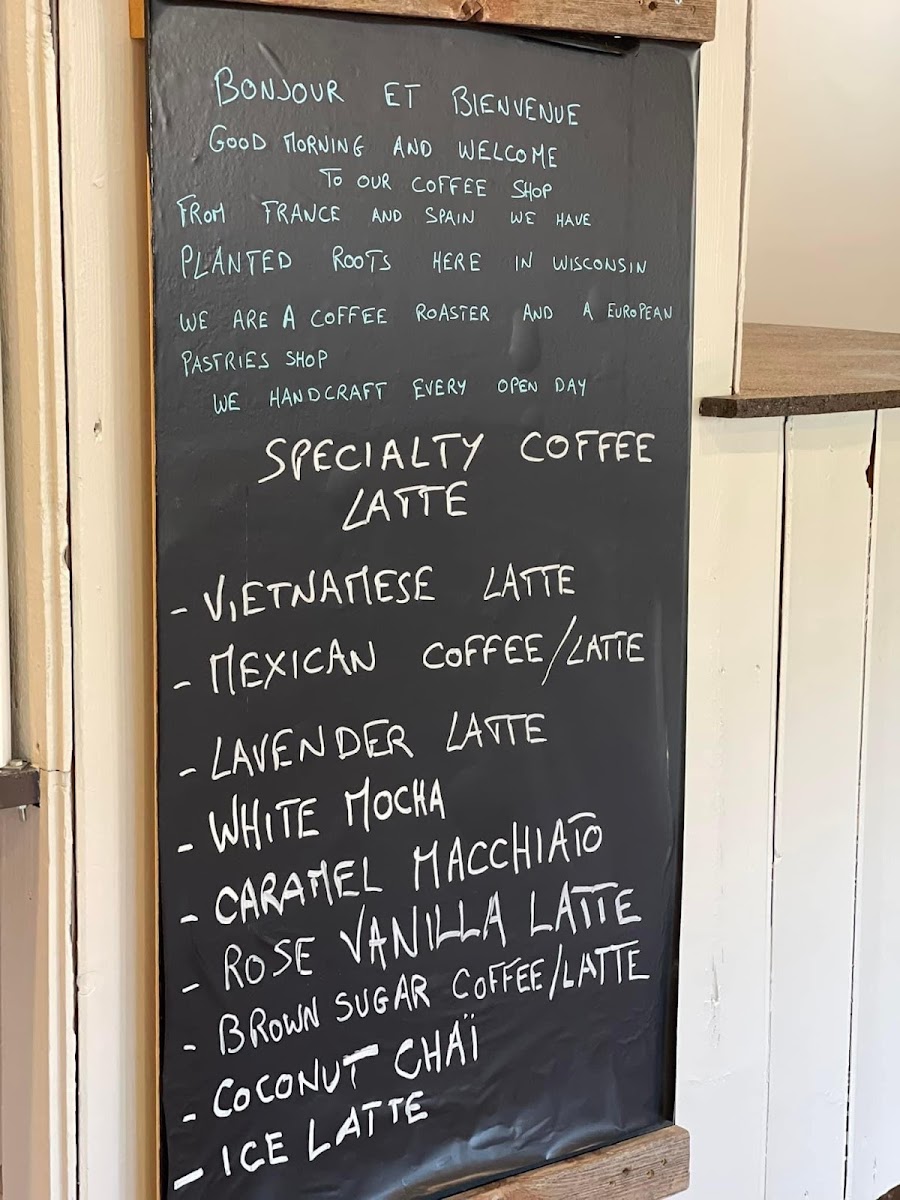 BONJOUR ET BIENVENUE
GOOD MORNING AND WELCOME
TO OUR COFFEE SHOP
FROM FRANCE AND SPAIN WE HAVE
PLANTED ROOTS HERE IN WISCONSIN
WE ARE A COFFEE ROASTER AND A EUROPEAN
PASTRIES SHOP
WE HANDCRAFT EVERY OPEN DAY
SPECIALTY COFFEE
LATTE
- VIETNAMESE LATTE
- MEXICAN COFFEE/LATTE
- LAVENDER LATTE
- WHITE MOCHA
- CARAMEL MACCHIATO
- ROSE VANILLA LATTE
- BROWN SUGAR COFFEE/LATTE
- COCONUT CHAÏ
- ICE LATTE